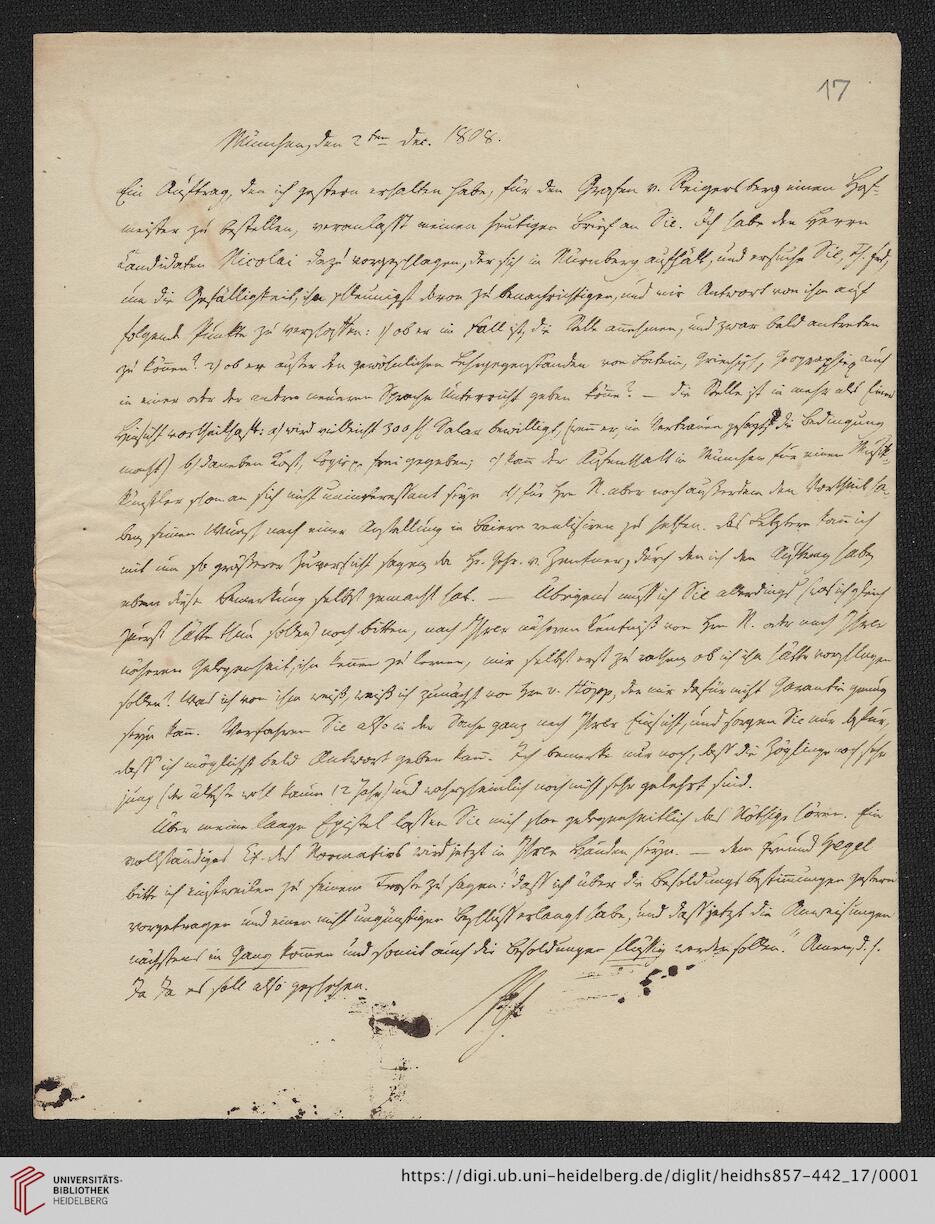 17
München, den 2ten Dec. 1808.
Ein Auftrag, den ich gestern erhalten habe, für den Grafen v. Reigersberg einen Hof-
meister zu bestellen, veranlasst meinen heutigen Brief an Sie. Ich habe den Herrn
Kandidaten Nicolai dazu vorgeschlagen, der sich in Nürnberg aufhält, und ersuche Sie,
um die Gefälligkeit, ihn schleunigst davon zu benachrichtigen, und mir Antwort von ihm auf
folgende Punkte zu verschaffen: 1) ob er im Fall ist, die Stelle annehmen, und zwar bald antreten
zu können? 2) ob er außer den gewöhnlichen Lehrgegenständen von Latein, Griechisch, Geographie auch
in einer oder der andern neueren Sprache Unterricht geben könne? — Die Stelle ist in mehr als Einer
Hinsicht vortheilhaft: a) wird vielleicht 300 fl Salar bewilligt, (wenn er, im Vertrauen gesagt, die Bedingung
macht) b) daneben Kost, Logis frei gegeben; c) kann der Aufenthalt in München für einen Musik-
künstler schon an sich nicht uninteressant seyn d) für Hrn N. aber noch außerdem den Vortheil ha-
ben, seinen Wunsch nach einer Anstellung in Baiern realisiren zu helfen. Das Letztere kann ich
mit um so größerer Zuversicht sagen, da Hr. Gehr. v. Zentner, durch den ich den Auftrag habe,
eben diese Bemerkung selbst gemacht hat. — Übrigens muß ich Sie allerdings (was ich gleich
zuerst hätte thun sollen) noch bitten, nach Ihrer näheren Kentniß von Hrn N. oder nach Ihrer
näheren Gelegenheit, ihn kennen zu lernen, mir selbst erst zu rathen, ob ich ihn hätte vorschlagen
sollen? Was ich von ihm weiß, weiß ich zunächst von Hrn v. der mir dafür nicht Garantie genug
seyn kann. Verfahren Sie also in der Sache ganz nach Ihrer Einsicht, und sorgen Sie nur dafür,
dass ich möglichst bald Antwort geben kann. Ich bemerke nur noch, dass die Zöglinge noch sehr
jung (der älteste wohl kaum 12 Jahr) und wahrscheinlich noch nicht sehr gelehrt sind.
Über meine lange Epistel lassen Sie mich schon gelegenheitlich das Nöthige hören. Ein
vollständiges Ex. des Normativs wird jetzt in Ihren Händen seyn. — Dem Freund Hegel
bitte ich einstweilen zu seinem Troste zu sagen: "dass ich über die Besoldungsbestimmungen gestern
vorgetragen und einen nicht ungünstigen Beschluss erlangt habe, und dass jetzt die Anweisungen
nächstens in Gang kommen und somit auch die Besoldungen flüssig werden sollen." Amen, d. h.
Ja Ja es soll also geschehen.
UNIVERSITÄTS-
BIBLIOTHEK
HEIDELBERG
https://digi.ub.uni-heidelberg.de/diglit/heidhs857-442_17/0001